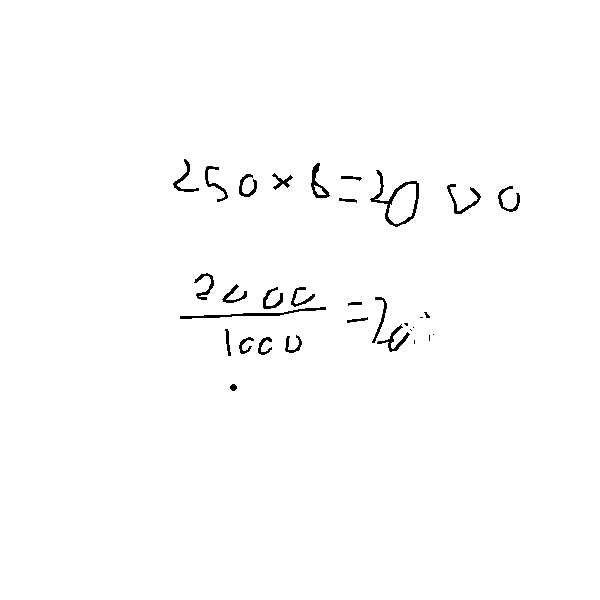 250 × 6 = 2000
2000
1000 = 20